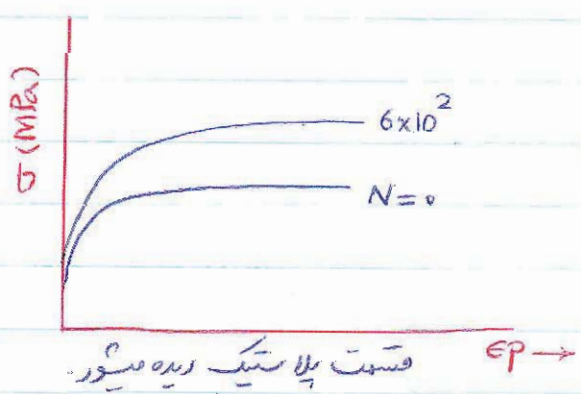 σ (MPa)
6×10²
N=0
εp →
قسمت پلاستیک دیده میشود.